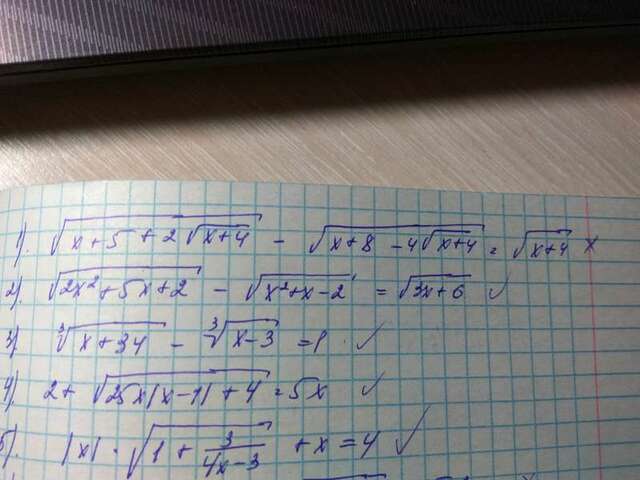 1). √(x+5+2√(x+4)) - √(x+8-4√(x+4)) = √(x+4) ×
2). √(2x²+5x+2) - √(x²+x-2) = √(3x+6) ✓
3) ∛(x+34) - ∛(x-3) = 1 ✓
4). 2+ √(25x|x-1|+4) = 5x ✓
5). |x| · √(1 + 3/(4x-3)) + x = 4 ✓